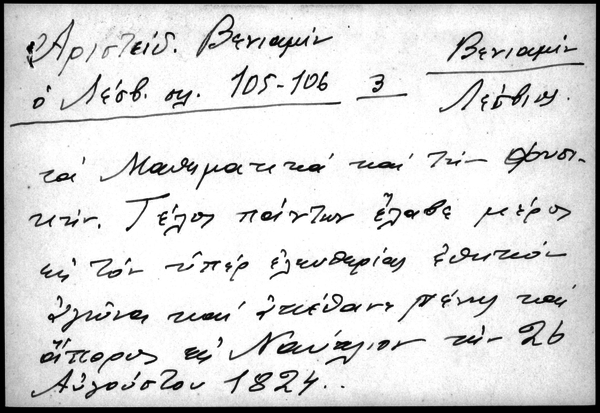 Ἀριστείδ. Βενιαμίν
ὁ Λέσβ. σελ. 105-106 3
Βενιαμίν
Λέσβιος.
τά Μαθηματικά καί τήν φυσι-
κήν. Τέλος πάντων ἔλαβε μέρος
εἰς τόν ὑπέρ ἐλευθερίας ἐθνικόν
ἀγῶνα καί ἀπέθανε πένης καί
ἄπορος εἰς Ναύπλιον τήν 26
Αὐγούστου 1824..